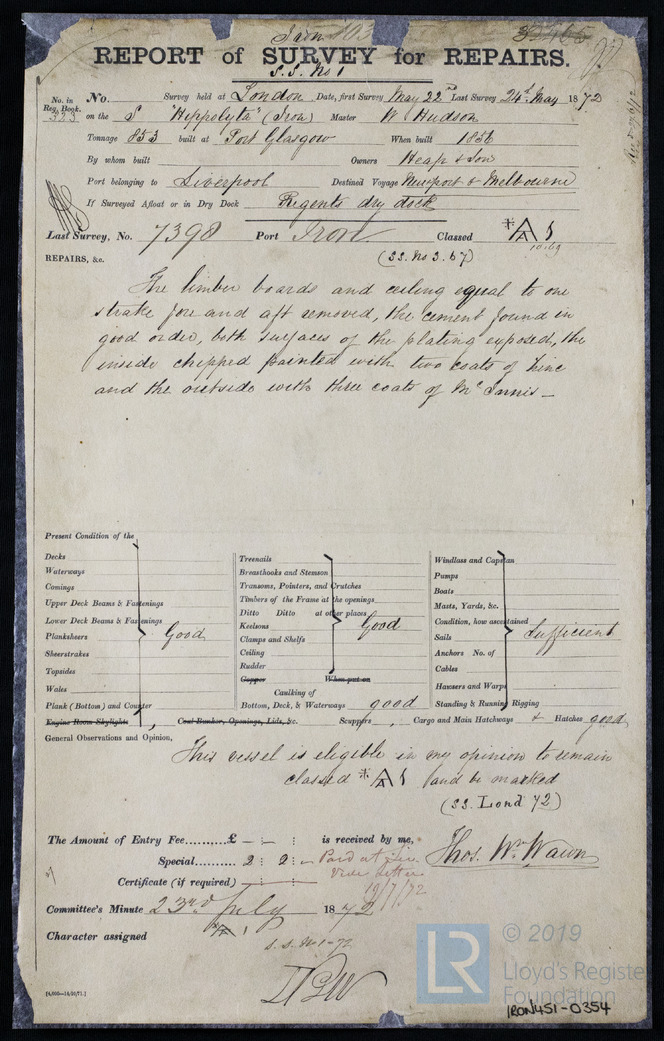 Iron
REPORT of SURVEY for REPAIRS.
S.S. No 1
No. in Reg. Book. 323
No. Survey held at London Date, first Survey May 22nd Last Survey 24th May 1872
on the S "Hippolyta" (Iron) Master W Hudson
Tonnage 853 built at Port Glasgow When built 1856
By whom built Owners Heap & Son
Port belonging to Liverpool Destined Voyage Newport & Melbourne
If Surveyed Afloat or in Dry Dock Regents dry dock
Last Survey, No. 7398 Port Iron Classed A 1
10.69
REPAIRS, &c. (SS. No 3. 67)
The limber boards and ceiling equal to one
strake fore and aft removed, the cement found in
good order, both surfaces of the plating exposed, the
inside chipped painted with two coats of Zinc
and the outside with three coats of
Present Condition of the
Decks
Waterways
Comings
Upper Deck Beams & Fastenings
Lower Deck Beams & Fastenings
Planksheers Good
Sheerstrakes
Topsides
Wales
Plank (Bottom) and Counter
Engine Room Skylights
Treenails
Breasthooks and Stemson
Transoms, Pointers, and Crutches
Timbers of the Frame at the openings
Ditto Ditto at other places
Keelsons Good
Clamps and Shelfs
Ceiling
Rudder
Copper When put on
Caulking of
Bottom, Deck, & Waterways good
Coal Bunker, Openings, Lids, &c.
Windlass and Capstan
Pumps
Boats
Masts, Yards, &c.
Condition, how ascertained
Sails Sufficient
Anchors No. of
Cables
Hawsers and Warps
Standing & Running Rigging
Scuppers, Cargo and Main Hatchways & Hatches good
General Observations and Opinion,
This vessel is eligible in my opinion to remain
classed A 1 and be marked
(SS. Lond 72)
The Amount of Entry Fee......£ – : – : is received by me,
Special......... 2 : 2 : – Paid at
Certificate (if required) vide letter
19/7/72
Thos. Wm. Wawn
Committee's Minute 23rd July 1872
Character assigned A 1
s.s. No 1-72
[4,000—14/10/71.]
LR © 2019
Lloyd's Registe
Foundation
IRON451-0354